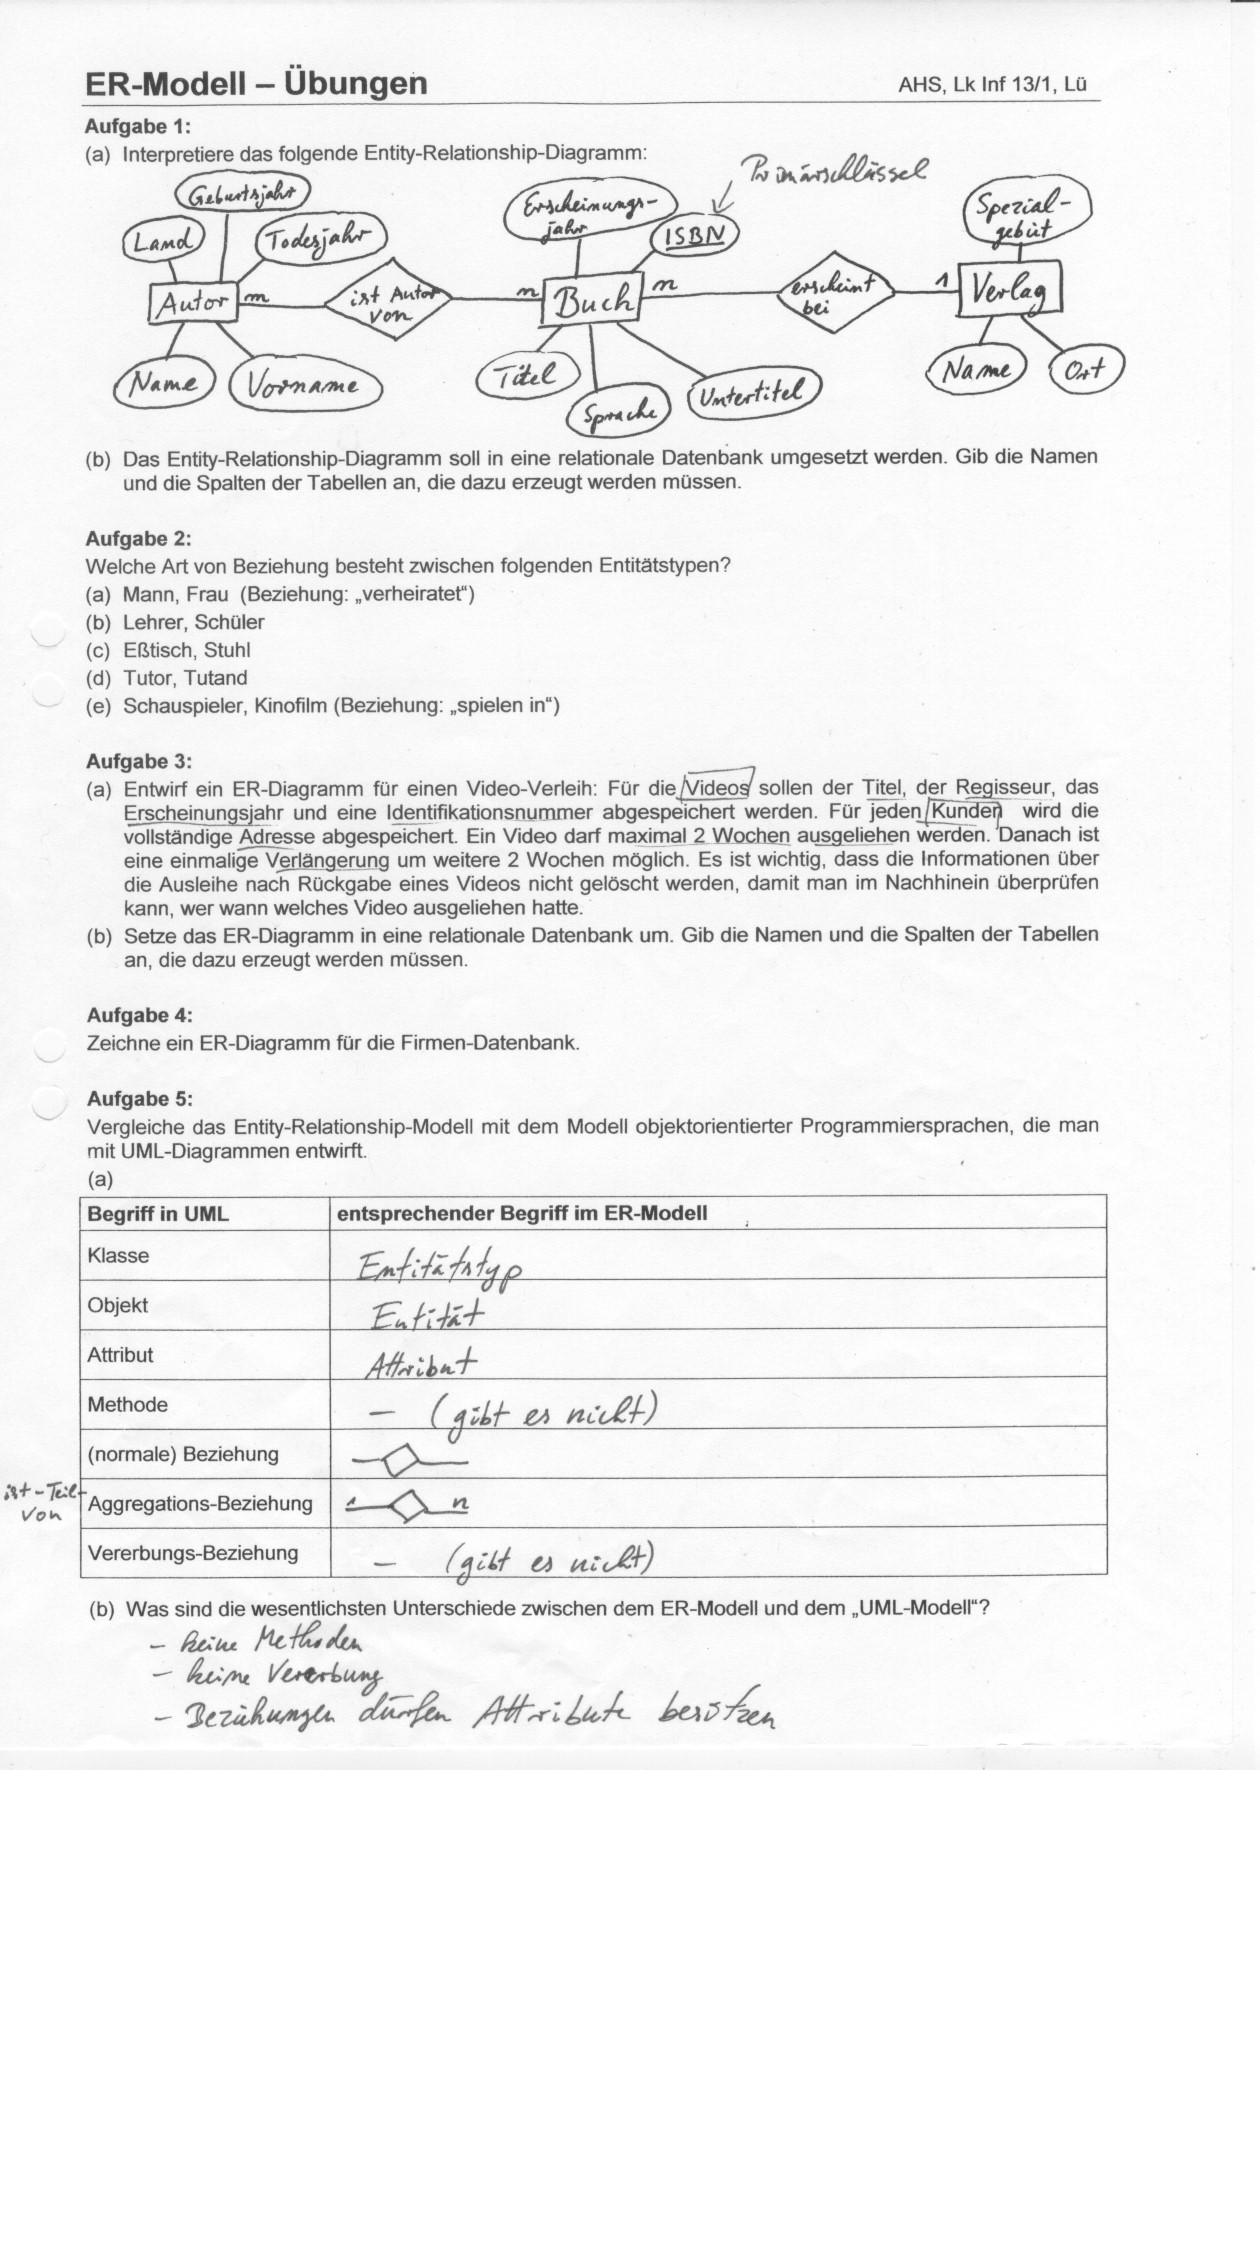 ER-Modell – Übungen AHS, Lk Inf 13/1, Lü
Aufgabe 1:
(a) Interpretiere das folgende Entity-Relationship-Diagramm:
Primärschlüssel
Geburtsjahr
Land
Todesjahr
Autor
m
ist Autor
von
n
Name
Vorname
Erscheinungs-
jahr
ISBN
Buch
n
erscheint
bei
1
Titel
Sprache
Untertitel
Spezial-
gebiet
Verlag
Name
Ort
(b) Das Entity-Relationship-Diagramm soll in eine relationale Datenbank umgesetzt werden. Gib die Namen
und die Spalten der Tabellen an, die dazu erzeugt werden müssen.
Aufgabe 2:
Welche Art von Beziehung besteht zwischen folgenden Entitätstypen?
(a) Mann, Frau (Beziehung: „verheiratet“)
(b) Lehrer, Schüler
(c) Eßtisch, Stuhl
(d) Tutor, Tutand
(e) Schauspieler, Kinofilm (Beziehung: „spielen in“)
Aufgabe 3:
(a) Entwirf ein ER-Diagramm für einen Video-Verleih: Für die Videos sollen der Titel, der Regisseur, das
Erscheinungsjahr und eine Identifikationsnummer abgespeichert werden. Für jeden Kunden wird die
vollständige Adresse abgespeichert. Ein Video darf maximal 2 Wochen ausgeliehen werden. Danach ist
eine einmalige Verlängerung um weitere 2 Wochen möglich. Es ist wichtig, dass die Informationen über
die Ausleihe nach Rückgabe eines Videos nicht gelöscht werden, damit man im Nachhinein überprüfen
kann, wer wann welches Video ausgeliehen hatte.
(b) Setze das ER-Diagramm in eine relationale Datenbank um. Gib die Namen und die Spalten der Tabellen
an, die dazu erzeugt werden müssen.
Aufgabe 4:
Zeichne ein ER-Diagramm für die Firmen-Datenbank.
Aufgabe 5:
Vergleiche das Entity-Relationship-Modell mit dem Modell objektorientierter Programmiersprachen, die man
mit UML-Diagrammen entwirft.
(a)
Begriff in UML entsprechender Begriff im ER-Modell
Klasse Entitätstyp
Objekt Entität
Attribut Attribut
Methode – (gibt es nicht)
(normale) Beziehung
ist-Teil-
von
Aggregations-Beziehung 1 n
Vererbungs-Beziehung – (gibt es nicht)
(b) Was sind die wesentlichsten Unterschiede zwischen dem ER-Modell und dem „UML-Modell“?
– keine Methoden
– keine Vererbung
– Beziehungen dürfen Attribute besitzen